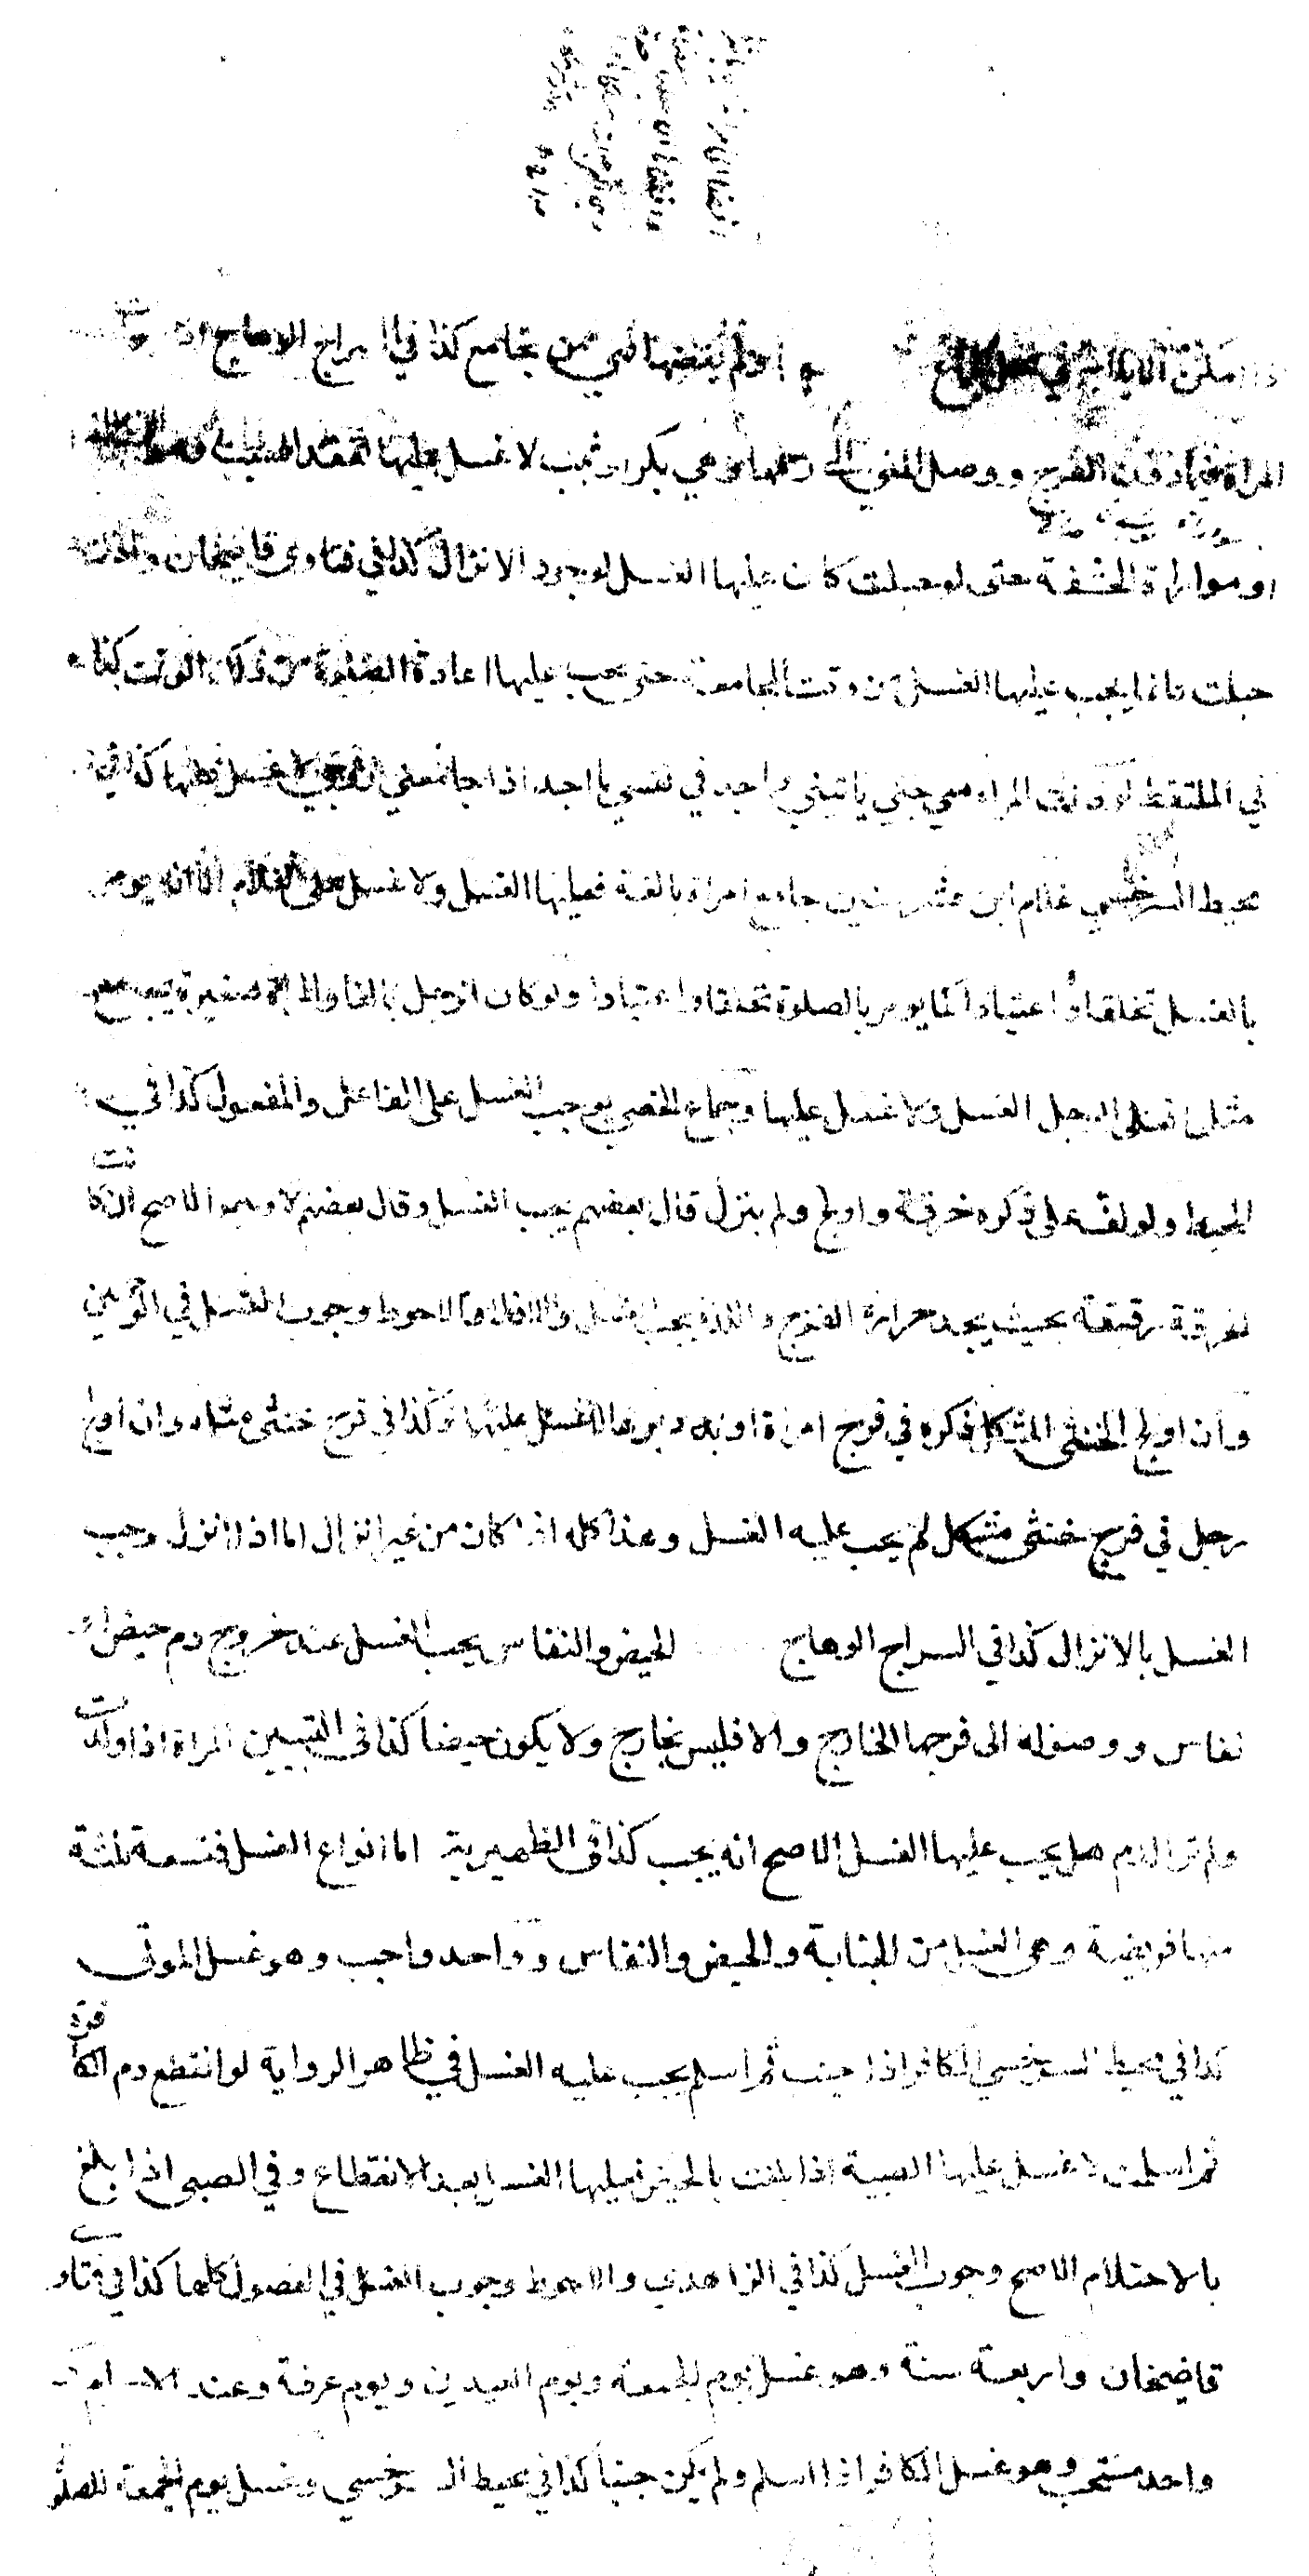 ان امكن الايلاج في ولم يفضها فهي ممن تجامع كذا في السراج الوهاج
المراة فيما دون الفرج ووصل المني الى رحمها وهي بكر او ثيب لا غسل عليها لفقد السبب وهو الانزال
او مواراة الحشفة حتى لو حبلت كان عليها الغسل لوجود الانزال كذا في فتاوى قاضيخان
حبلت فانما يجب عليها الغسل من وقت المجامعة حتى يجب عليها اعادة الصلوة من ذلك الوقت كذا
في الملتقط لو قالت المراة معي جني ياتيني واجد في نفسي ما اجد اذا جامعني زوجي لا غسل عليها كذا في
محيط السرخسي غلام ابن عشر سنين جامع امراة بالغة فعليها الغسل ولا غسل على الغلام الا انه يومر
بالغسل تخلقا واعتيادا كما يومر بالصلوة تخلقا واعتيادا ولو كان الرجل بالغا والمراة صغيرة يجامع
مثلها فعلى الرجل الغسل ولا غسل عليها وجماع الخصي يوجب الغسل على الفاعل والمفعول كذا في
المحيط ولو لف على ذكره خرقة واولج ولم ينزل قال بعضهم يجب الغسل وقال بعضهم لا وهو الاصح ان كانت
الخرقة رقيقة بحيث يجد حرارة الفرج واللذة يجب الغسل والا فلا والاحوط وجوب الغسل في الوجهين
وان اولج الخنثى المشكل ذكره في فرج امراة او دبرها لا غسل عليهما وكذا في فرج خنثى مثله وان اولج
رجل في فرج خنثى مشكل لم يجب عليه الغسل وهذا كله اذا كان من غير انزال اما اذا انزل وجب
الغسل بالانزال كذا في السراج الوهاج الحيض والنفاس يجب الغسل عند خروج دم حيض او
نفاس ووصوله الى فرجها الخارج والا فليس بخارج ولا يكون حيضا كذا في التبيين المراة اذا ولدت
ولم تر الدم هل يجب عليها الغسل الاصح انه يجب كذا في الظهيرية اما انواع الغسل فتسعة ثلثة
منها فريضة وهي الغسل من الجنابة والحيض والنفاس وواحد واجب وهو غسل الموتى
كذا في محيط السرخسي الكافر اذا اجنب ثم اسلم يجب عليه الغسل في ظاهر الرواية لو انقطع دم الكافرة
ثم اسلمت لا غسل عليها الصبية اذا بلغت بالحيض فعليها الغسل بعد الانقطاع وفي الصبي اذا بلغ
بالاحتلام الاصح وجوب الغسل كذا في الزاهدي والاحوط وجوب الغسل في الفصول كلها كذا في فتاوى
قاضيخان واربعة سنة وهو غسل يوم الجمعة ويوم العيدين ويوم عرفة وعند الاحرام
واحد مستحب وهو غسل الكافر اذا اسلم ولم يكن جنبا كذا في محيط السرخسي وغسل يوم الجمعة للصلوة